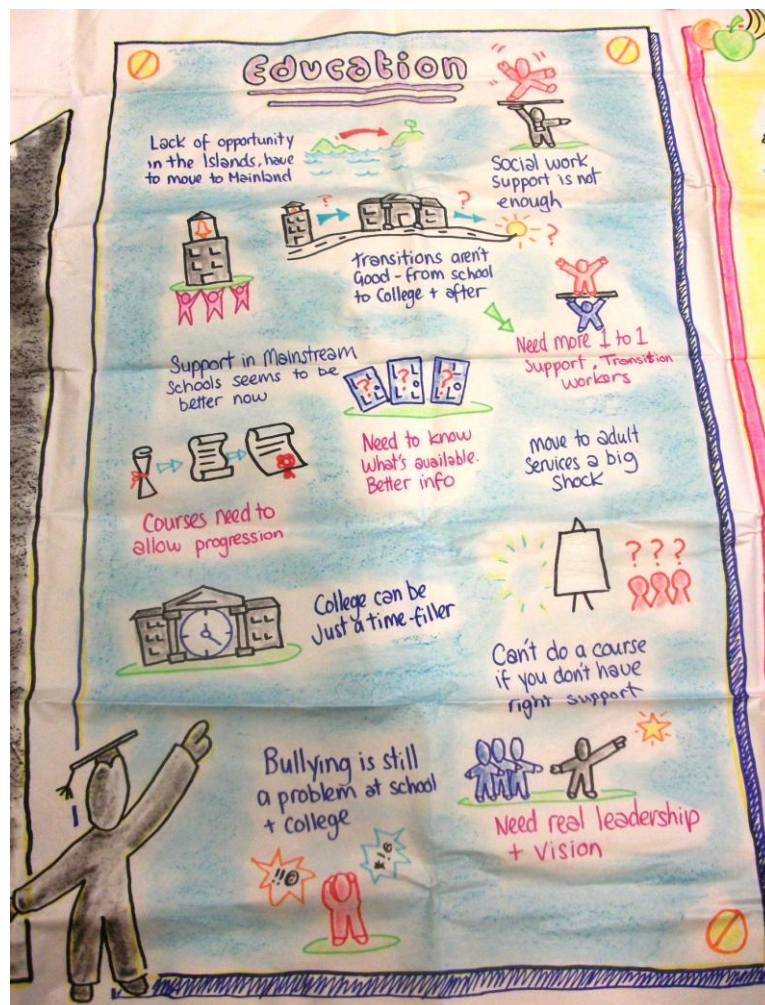 Education
Lack of opportunity
in the Islands, have
to move to Mainland
Social work
support is not
enough
?
?
?
transitions aren't
Good - from school
to College + after
Need more 1 to 1
support, Transition
workers
Support in Mainstream
schools seems to be
better now
? ? ?
Need to know
what's available.
Better info
move to adult
services a big
shock
Courses need to
allow progression
? ? ?
College can be
Just a time-filler
Can't do a course
if you don't have
right support
Bullying is still
a problem at school
+ college
Need real leadership
+ Vision